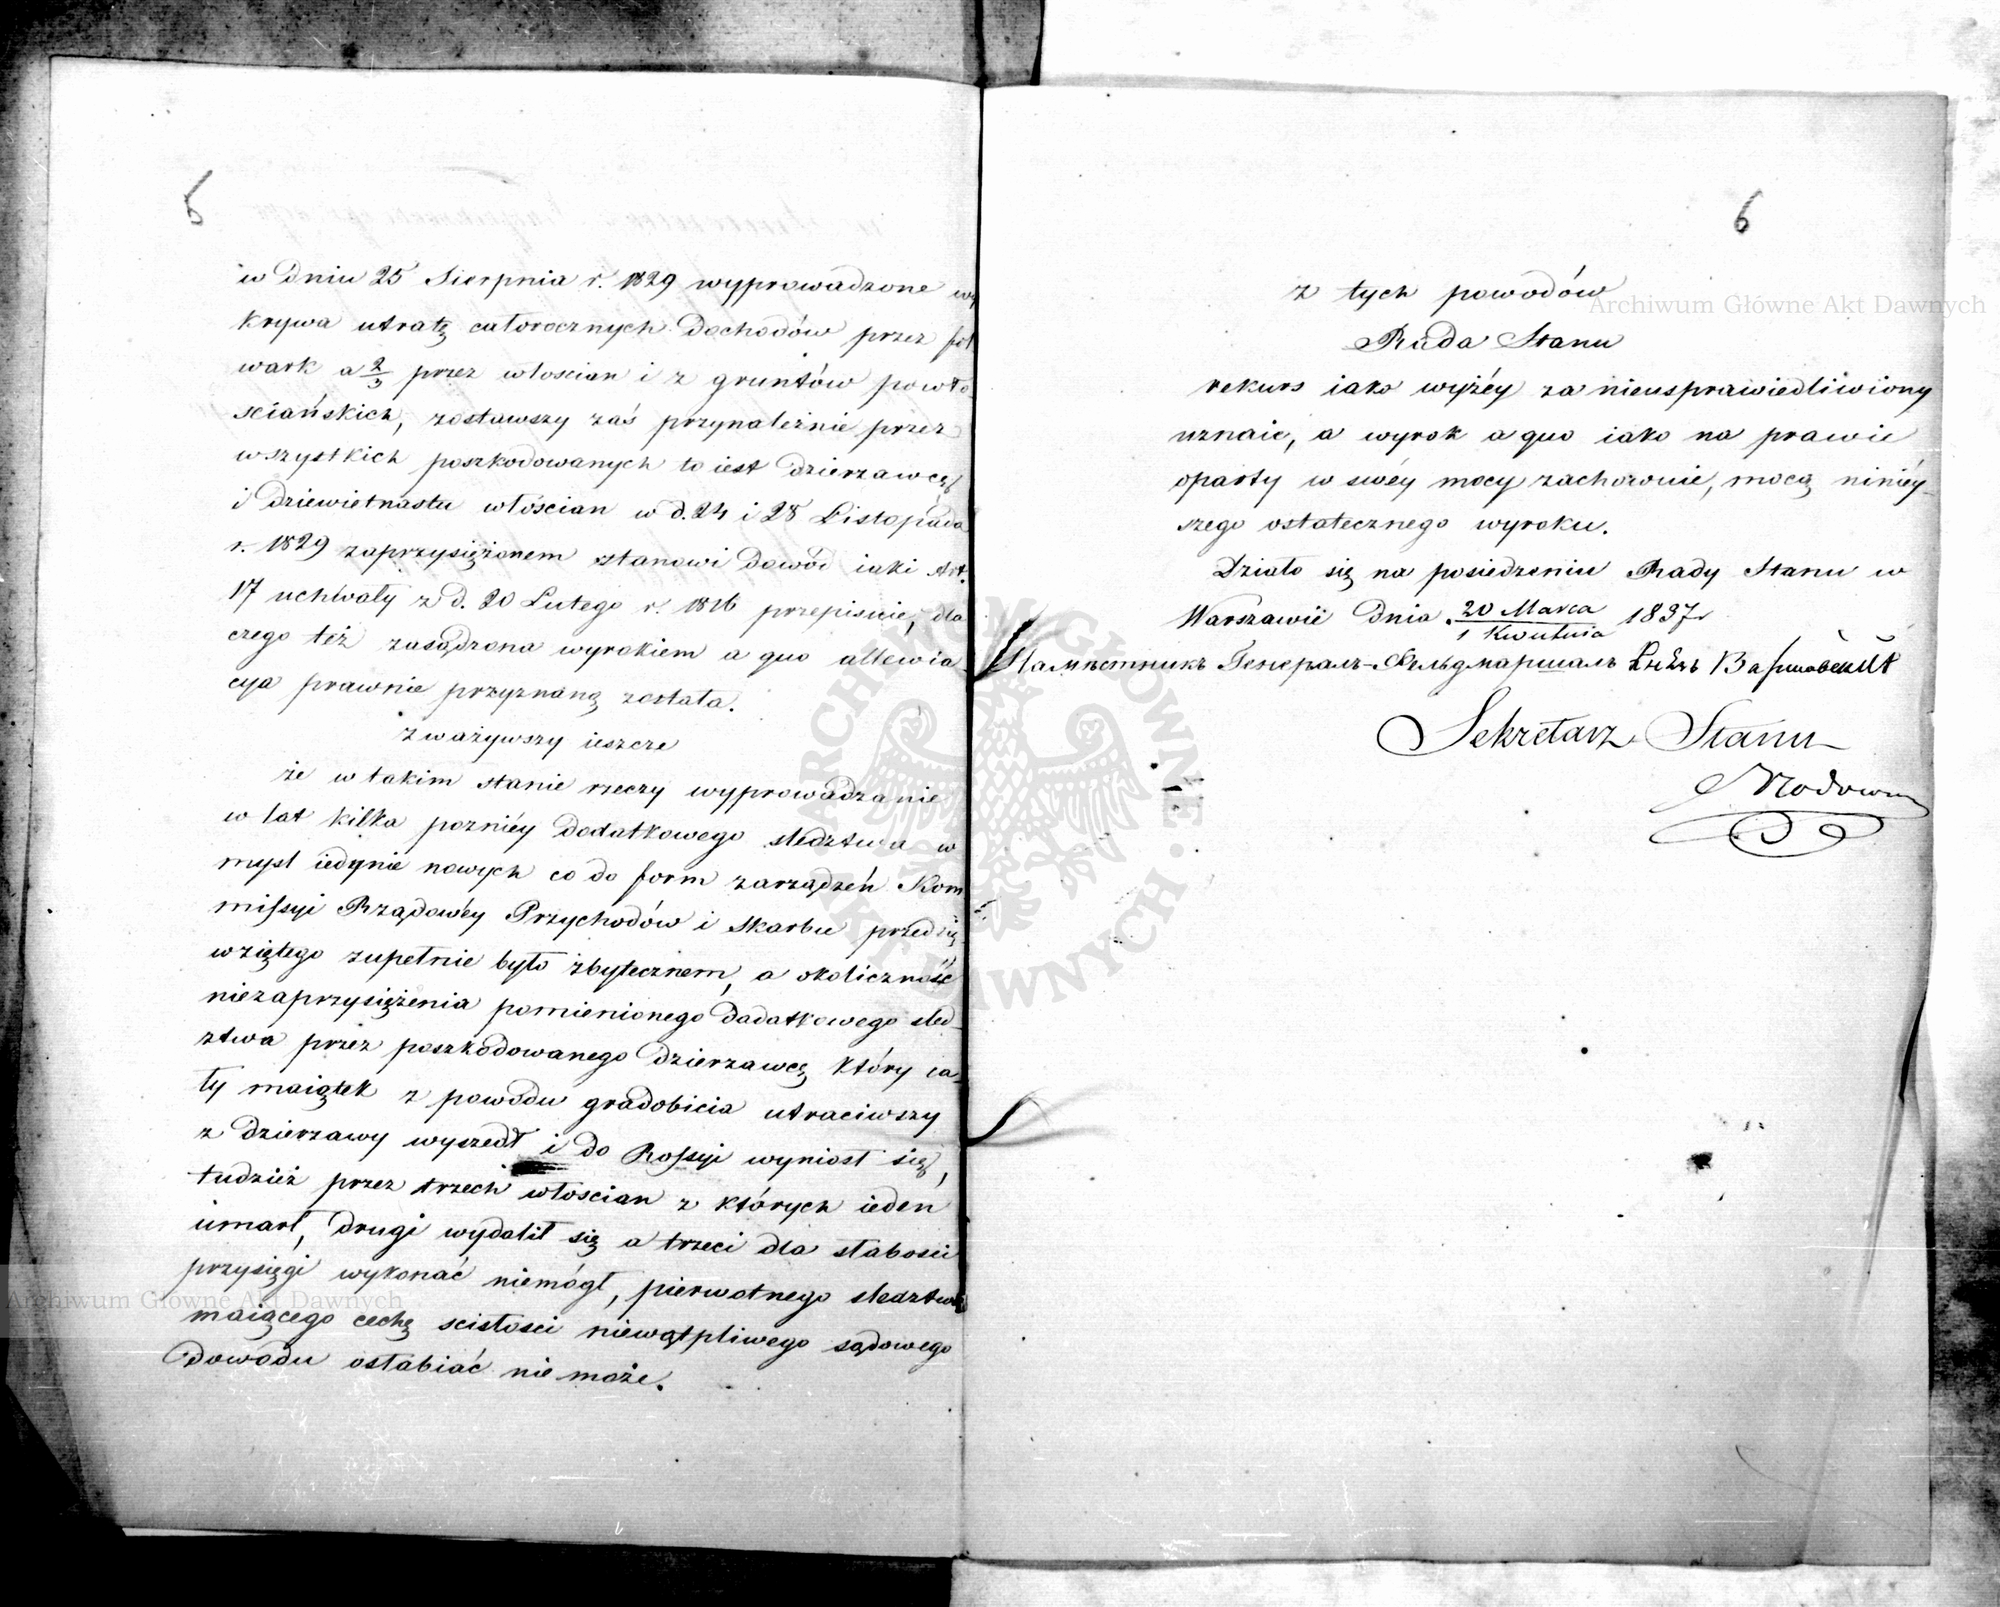 6
w dniu 25 Sierpnia r. 1829 wyprowadzone wy
krywa utratę całorocznych dochodów przez fol
wark a 2/3 przez włoscian i z gruntów powło-
sciańskich, zostawszy zaś przynależnie przez
wszystkich poszkodowanych to iest dzierzawcę
i dziewietnastu włóscian w d. 24 i 28 Listopada
r. 1829 zaprzysiężonem stanowi dowód iaki Art.
17 uchwały z d. 20 Lutego r. 1816 przepisuie, dla
czego też zasądzona wyrokiem a quo allewia
cya prawnie przyznaną została.
zważywszy ieszcze
że w takim stanie rzeczy wyprowadzanie
w lat kilka pozniéy dodatkowego sledztwa w
mysl iedynie nowych co do form zarządzeń Kom
missyi Rządowéy Przychodów i Skarbu przedsię
wziętego zupełnie było zbytecznem, a okoliczność
niezaprzysiężenia pomienionego dodatkowego sled-
ztwa przez poszkodowanego dzierzawcę, który ca-
ły maiątek z powodu gradobicia utraciwszy
z dzierzawy wyszedł i do Rossyi wyniosł się,
tudzież przez trzech włoscian z których ieden
umarł, drugi wydalił się a trzeci dla słabosci
przysięgi wykonać niemógł, pierwotnego sledztwa
maiącego cechę scisłosci niewątpliwego sądowego
dowodu osłabiać nie może.
6
z tych powodów
Rada Stanu
rekurs iako wyżéy za nieusprawiedliwiony
uznaie, a wyrok a quo iako na prawie
oparty w swéy mocy zachowuie, mocą niniéy-
szego ostatecznego wyroku.
Działo się na posiedzeniu Rady Stanu w
Warszawie dnia 20 Marca / 1 Kwietnia 1837 r
Намѣстникъ Генералъ-Фельдмаршалъ Князь Варшавскій
Sekretarz Stanu
Archiwum Główne Akt Dawnych
Archiwum Główne Akt Dawnych
ARCHIWUM GŁÓWNE AKT DAWNYCH